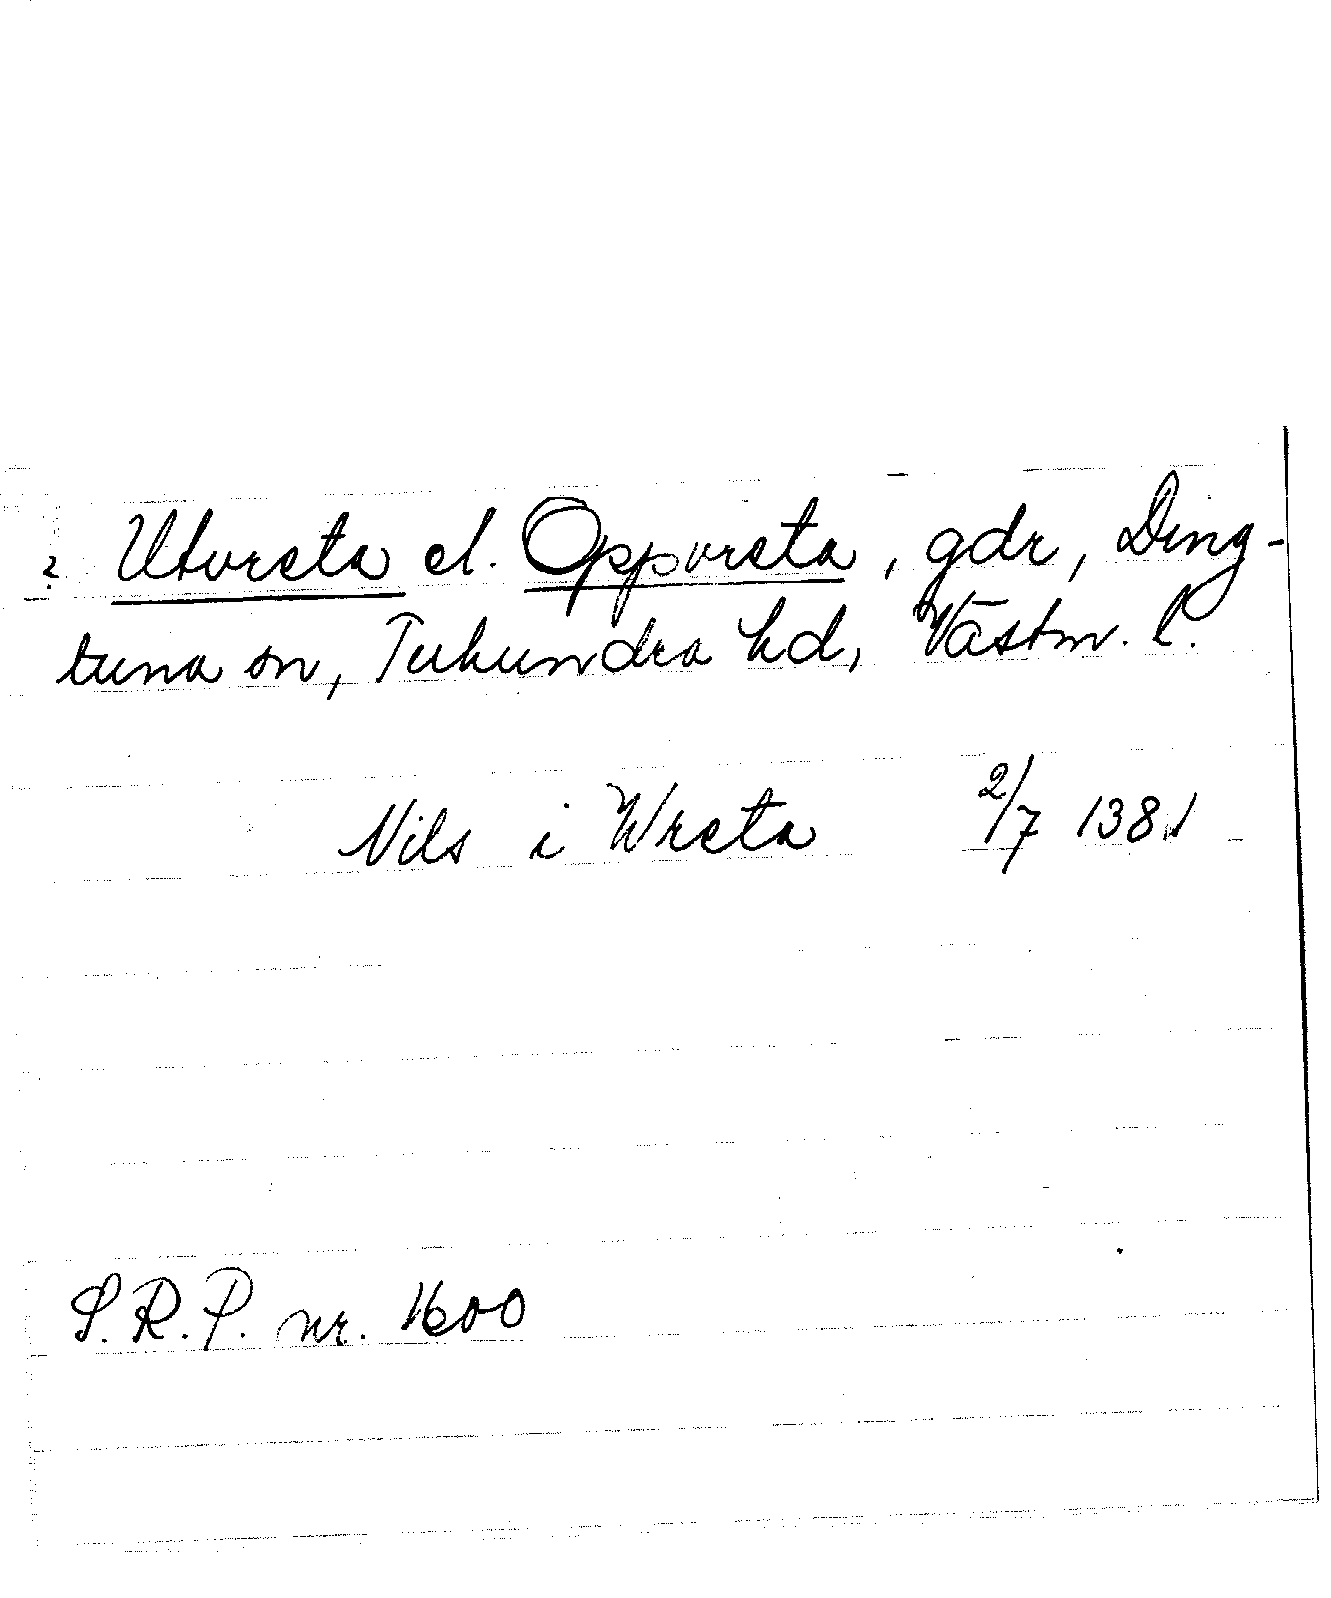 ? Utvreta el. Oppvreta, gdr, Ding-
tuna sn, Tuhundra hd, Västm. l.
Nils i Wreta 2/7 1381
S.R.P. nr. 1600